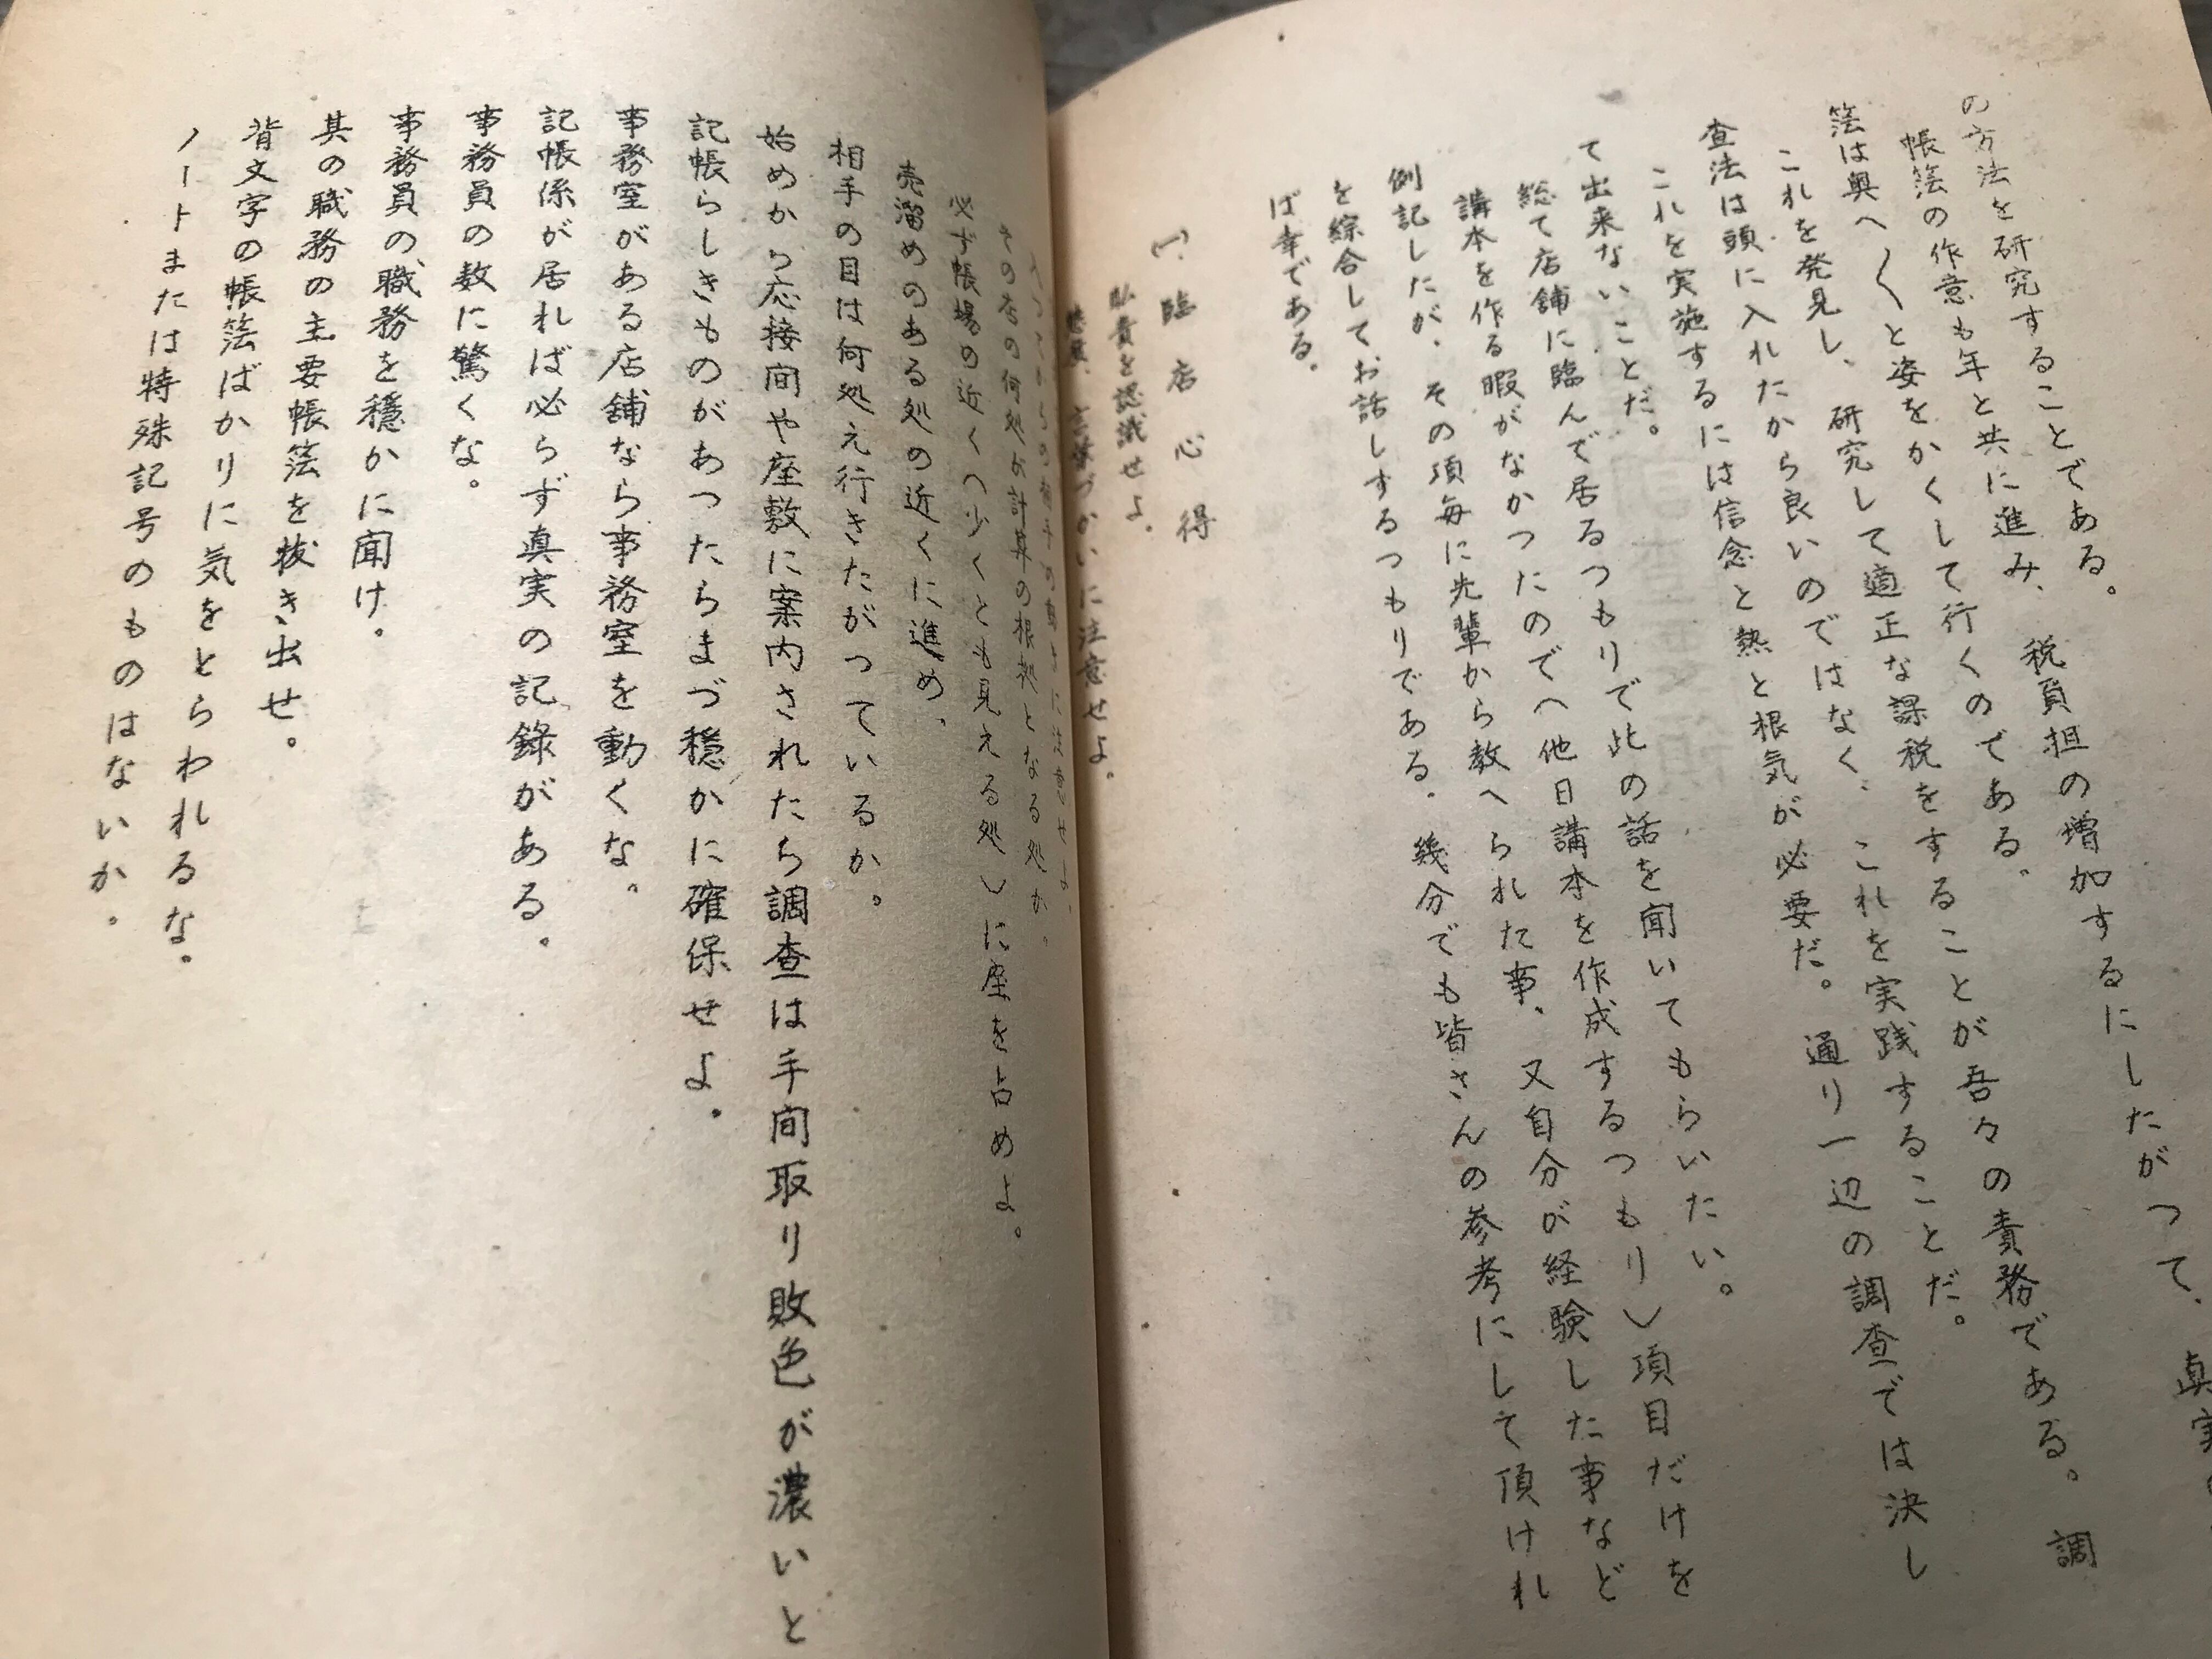 真実
の方法を研究することである。
帳簿の作意も年と共に進み、税負担の増加するにしたがつて、
簿は奥へ〱と姿をかくして行くのである。
これを発見し、研究して適正な課税をすることが吾々の責務である。調
査法は頭に入れたから良いのではなく、これを実践することだ。
これを実施するには信念と熱と根気が必要だ。通り一辺の調査では決し
て出来ないことだ。
総て店舗に臨んで居るつもりで此の話を聞いてもらいたい。
講本を作る暇がなかつたので(他日講本を作成するつもり)項目だけを
例記したが、その項毎に先輩から教へられた事、又自分が経験した事など
を綜合してお話しするつもりである。幾分でも皆さんの参考にして頂けれ
ば幸である。
(一)、臨店心得
責を認識せよ。
言葉づかいに注意せよ。
入つてからの相手の
に注意せよ。
その店の何処が計算の根処となる処か。
必ず帳場の近く(少くとも見える処)に座を占めよ。
売溜めのある処の近くに進め、
相手の目は何処え行きたがつているか。
始めから応接間や座敷に案内されたら調査は手間取り敗色が濃いと
記帳らしきものがあつたらまづ穏かに確保せよ。
事務室がある店舗なら事務室を動くな。
記帳係が居れば必らず真実の記錄がある。
事務員の数に驚くな。
事務員の職務を穏かに聞け。
其の職務の主要帳簿を抜き出せ。
背文字の帳簿ばかりに気をとらわれるな。
ノートまたは特殊記号のものはないか。